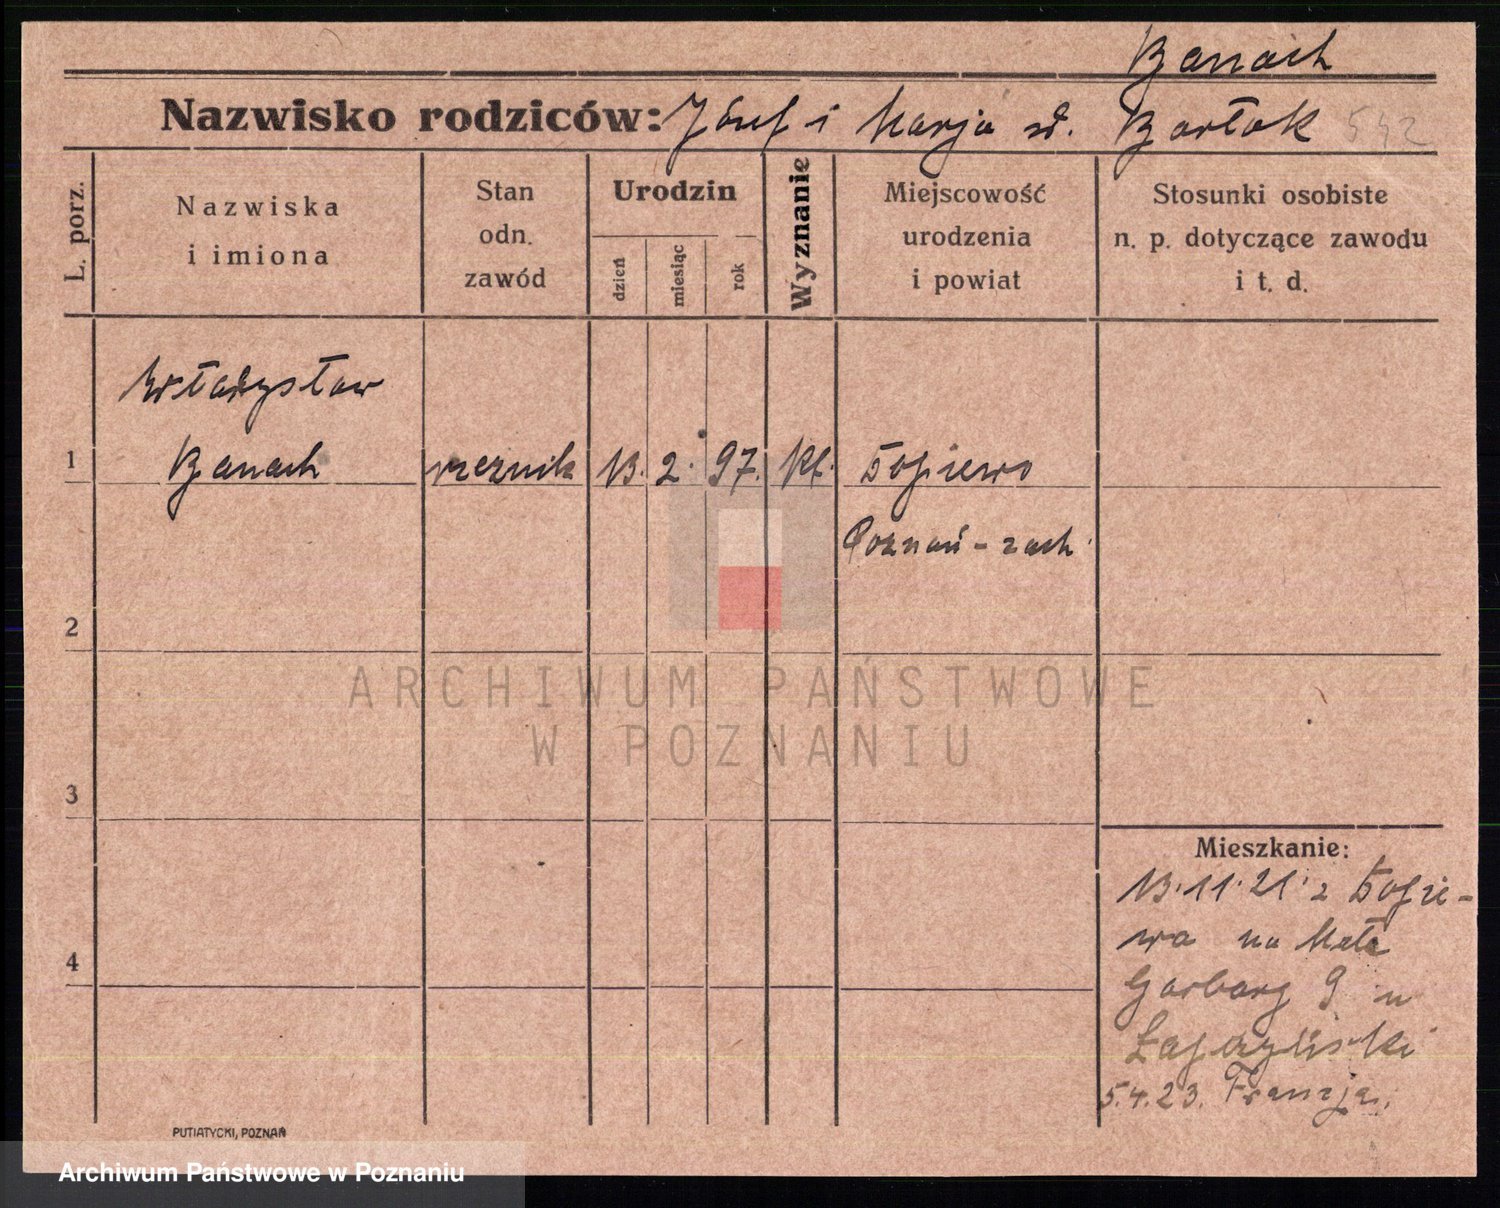 Banach
Nazwisko rodziców: Józef i Marja zd. Bartak 542
L. porz.
Nazwiska
i imiona
Stan
odn.
zawód
Urodzin
dzień
miesiąc
rok
Wyznanie
Miejscowość
urodzenia
i powiat
Stosunki osobiste
n. p. dotyczące zawodu
i t. d.
Władysław
1 Banach rzeznik 13. 2. 97. kt. Dopiewo
Poznań - zach.
2
ARCHIWUM PAŃSTWOWE
W POZNANIU
3
Mieszkanie:
13.11.21. z Dopie-
wa na Małe
4
Garbary 9 u
5.4.23. Francja.
PUTIATYCKI, POZNAŃ
Archiwum Państwowe w Poznaniu